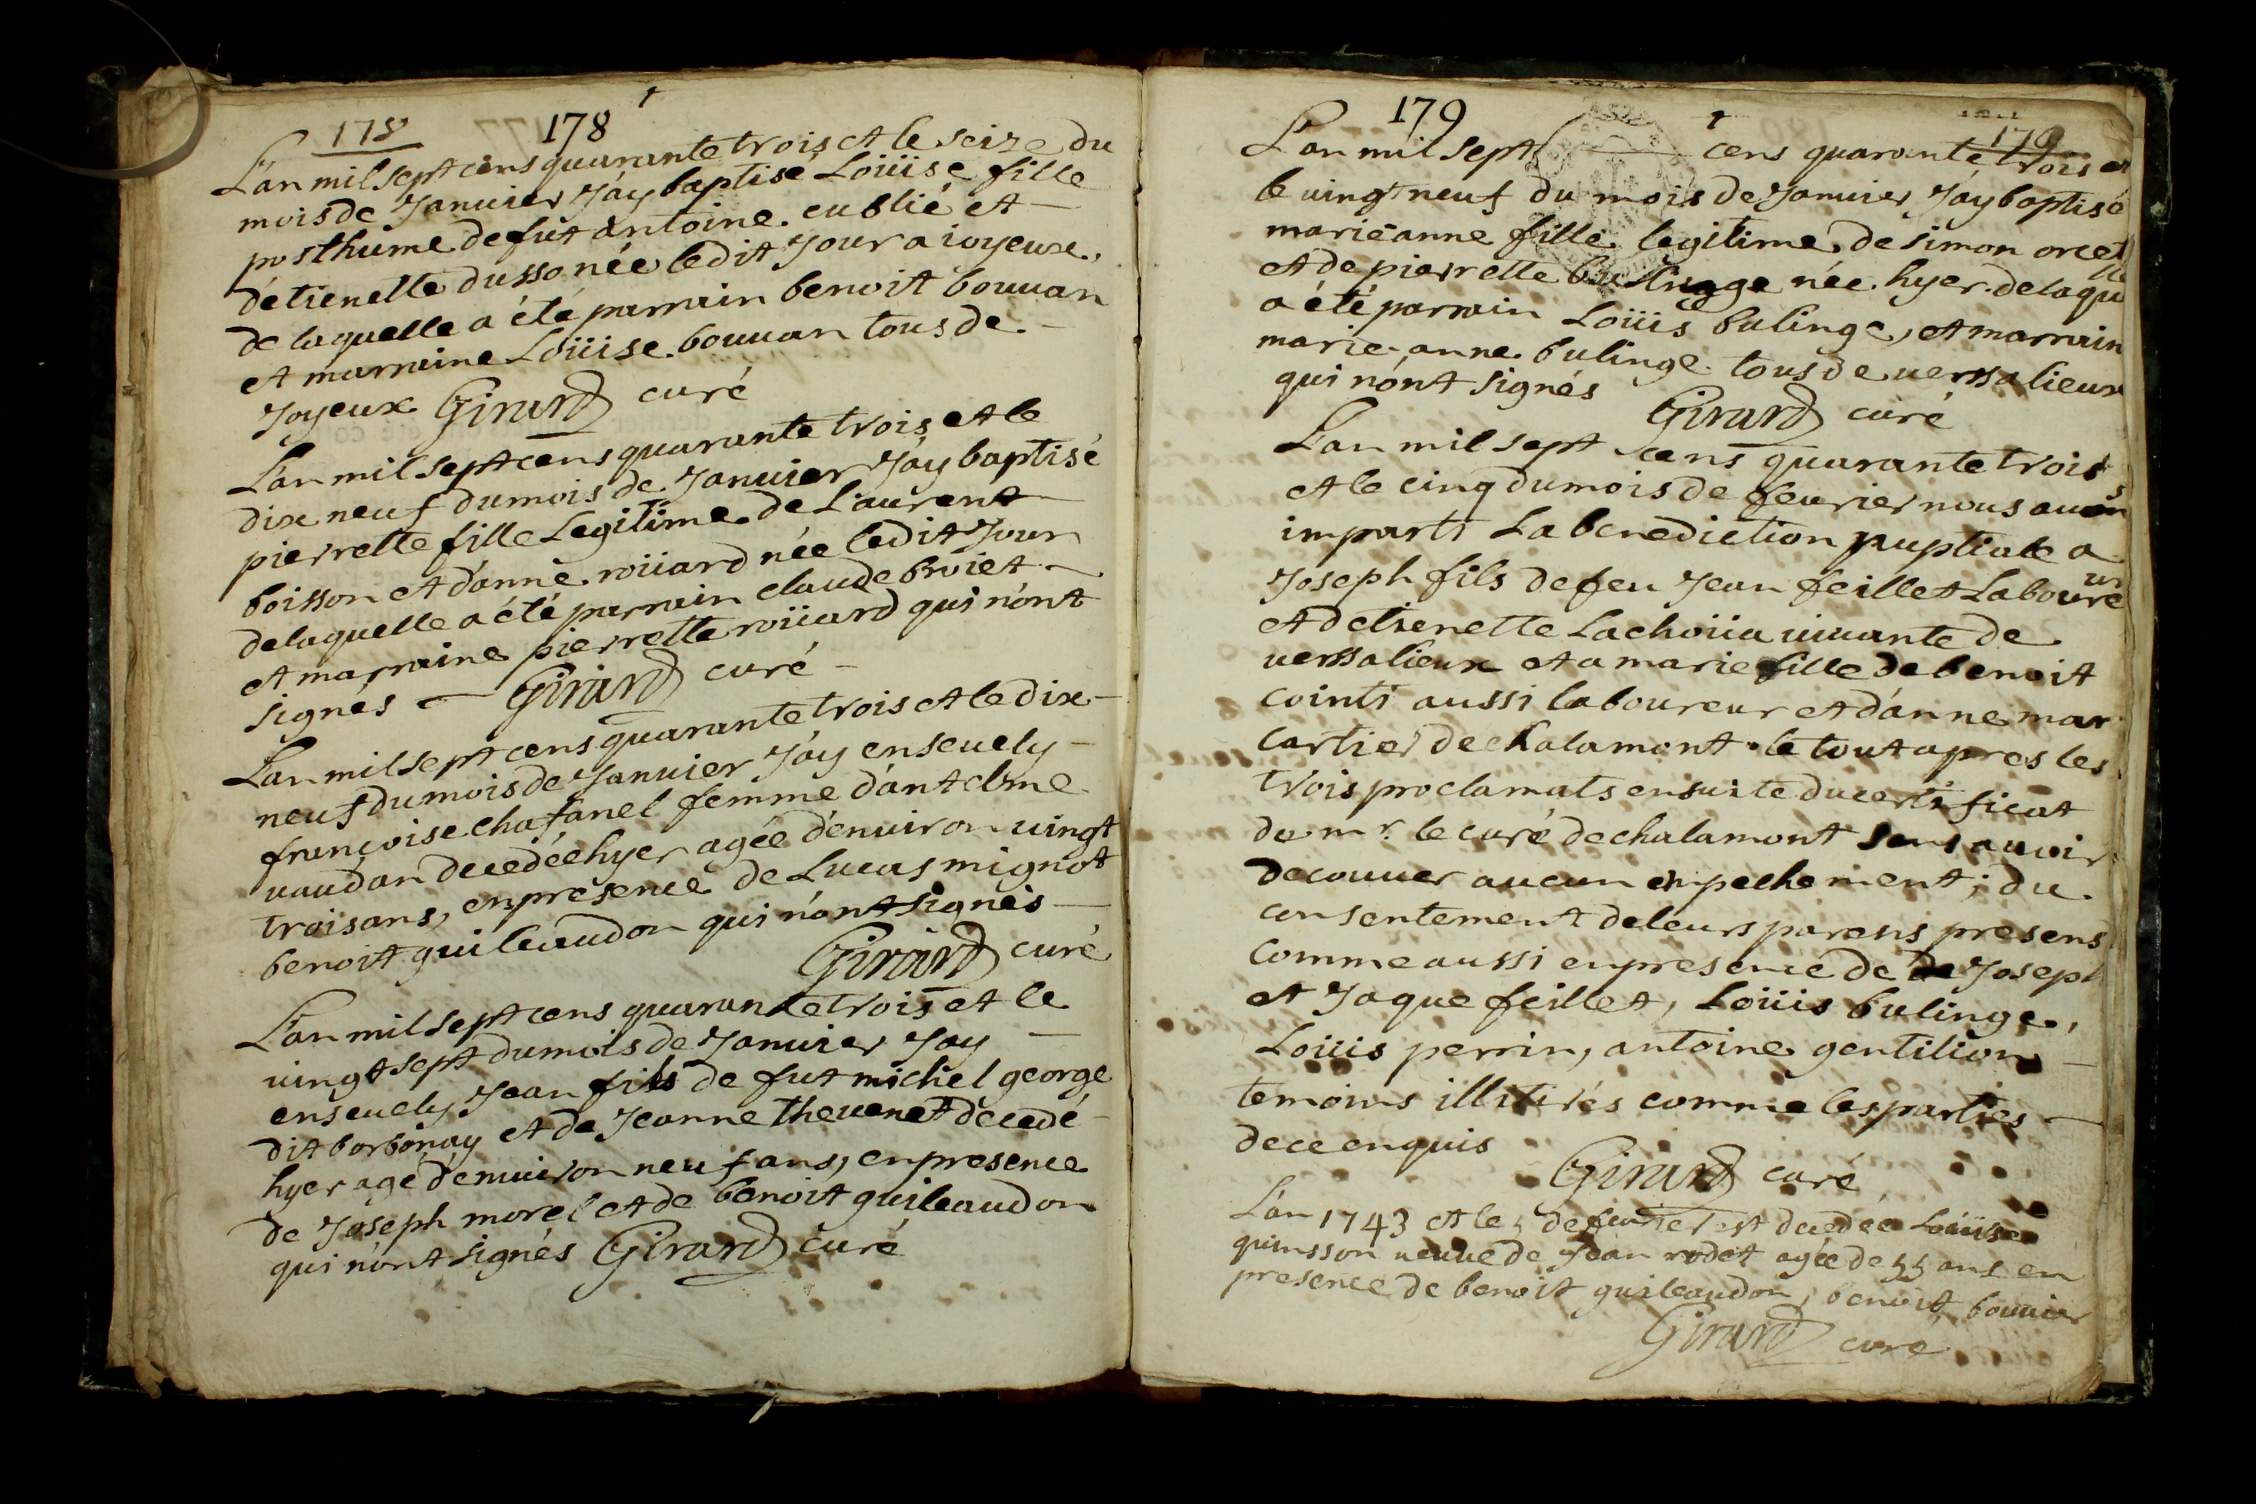 178
178
L'an mil sept cens quarante trois et le seize du
mois de Janvier J'ay baptisé Loüise fille
posthume de fut antoine cublié et
d'etienette dusso née ledit Jour a ioyeux,
de laquelle a été parrain benoit bouvan
et marraine Loüise bouvan tous de
Joyeux Girard curé
L'an mil sept cens quarante trois et le
dix neuf du mois de Janvier J'ay baptisé
pierrette fille Legitime de Laurent
boisson et d'anne roüard née ledit Jour
de laquelle a été parrain claude broiet
et marraine pierrette roüard qui n'ont
signés Girard curé
L'an mil sept cens quarante trois et le dix
neuf du mois de Janvier J'ay ensevely
françoise chafanel femme d'antelme
vaudan decedée hyer agée d'environ vingt
trois ans, en presence de Lucas mignot
benoit guileaudon qui n'ont signés
Girard curé
L'an mil sept cens quarante trois et le
vingt sept du mois de Janvier J'ay
ensevely Jean fils de fut michel george
dit borbonay et de Jeanne thevenet decedé
hyer agé d'environ neuf ans, en presence
de Joseph morel et de benoit guileaudon
qui n'ont signés Girard curé
179
179
L'an mil sept cens quarante trois et
le vingt neuf du mois de Janvier J'ay baptisé
marie anne fille legitime de simon orcet
et de pierrette bulinge née hyer de laquelle
a été parrain Loüis bulinge, et marrain
marie anne bulinge tous de versalieux
qui n'ont signés Girard curé
L'an mil sept cens quarante trois
et le cinq du mois de fevrier nous avons
imparti La benediction nuptiale a
Joseph fils de feu Jean feillet Laboureur
et d'etienette Lachoüa vivante de
versalieux et a marie fille de benoit
cointi aussi laboureur et d'anne mar
cartier de chalamont le tout apres les
trois proclamats ensuite du certificat
de mr. le curé de chalamont sans avoir
decouver aucun empechement; du
consentement de leurs parens presens
comme aussi en presence de Joseph
et Jaque feillet, Loüis bulinge,
Loüis perrin, antoine gentilion
temoins illitirés comme les parties
de ce enquis
Girard curé
L'an 1743 et le 5 de fevrier est decedée Loüise
quinsson veuve de Jean rodet agée de 55 ans en
presence de benoit guileaudon, benoit bouvier
Girard curé